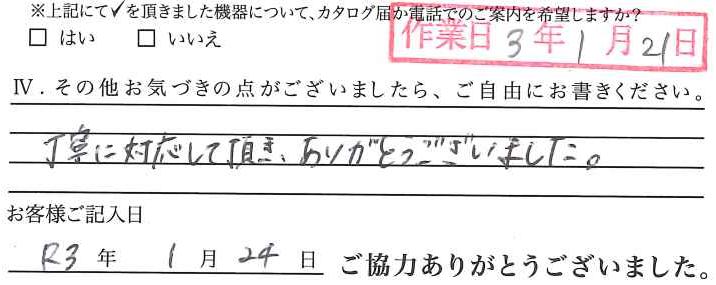 ※上記にて✓を頂きました機器について、カタログ届か電話でのご案内を希望しますか?
□ はい □ いいえ
作業日 3年 1月 21日
Ⅳ．その他お気づきの点がございましたら、ご自由にお書きください。
丁寧に対応して頂き、ありがとうございました。
お客様ご記入日
R3 年 1 月 24 日 ご協力ありがとうございました。